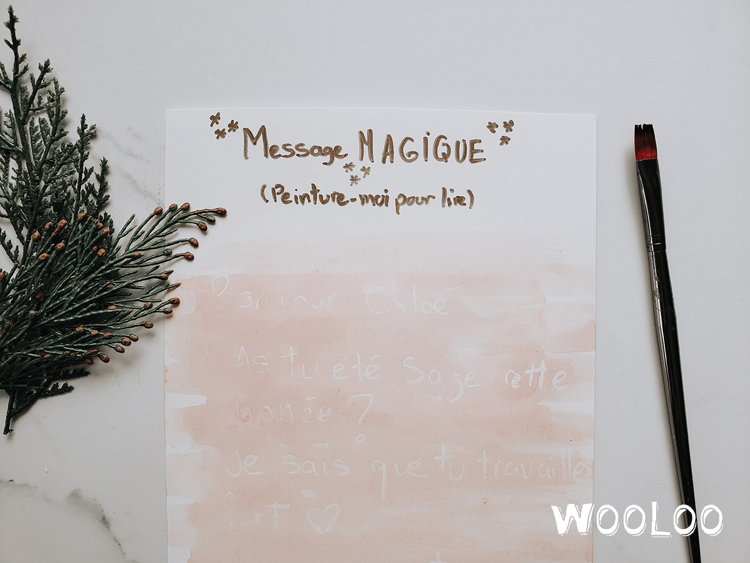 Message MAGiQUE
(Peinture-moi pour lire)
Bonjour Chloé
As tu été sage cette
année ?
Je sais que tu travailles
fort
WOOLOO